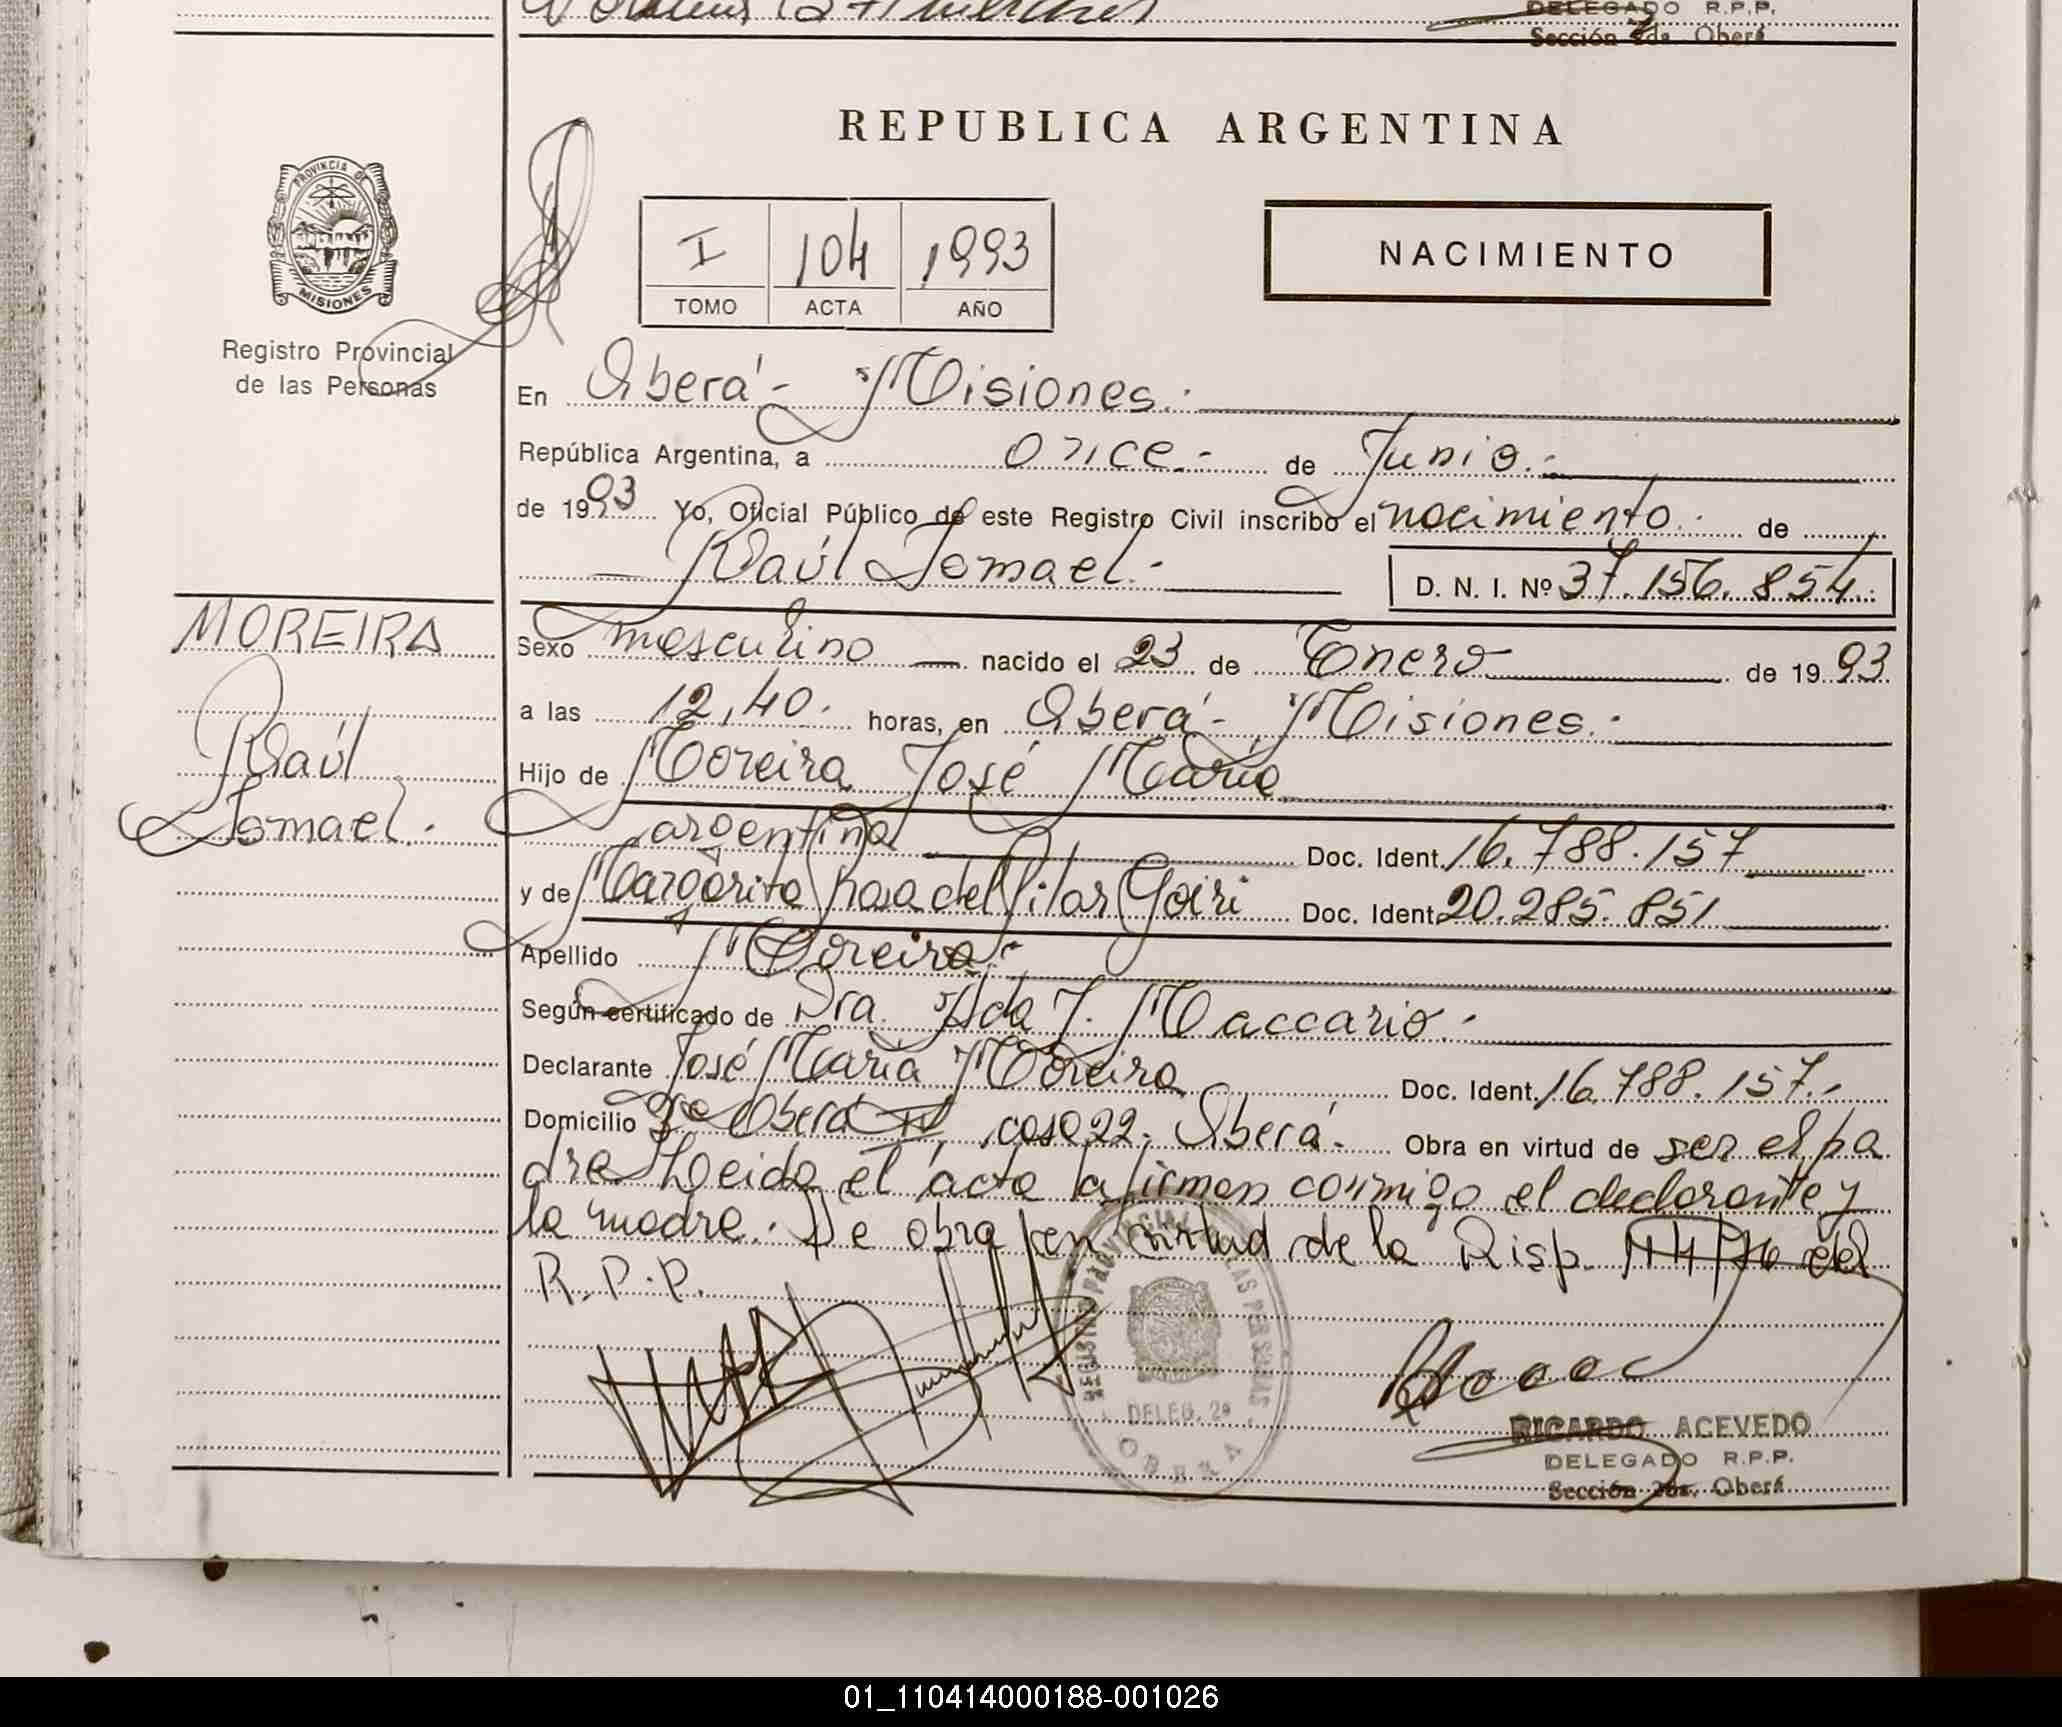 DELEGADO R.P.P.
Sección 2da. Oberá
REPUBLICA ARGENTINA
PROVINCIA DE
MISIONES
Registro Provincial
de las Personas
I 104 1993
TOMO ACTA AÑO
NACIMIENTO
En Oberá - Misiones.-
República Argentina, a once.- de Junio.-
de 1993 Yo, Oficial Público de este Registro Civil inscribo el nacimiento.- de
Raúl Ismael.- D. N. I. Nº 37.156.854.-
MOREIRA
Raúl
Ismael.-
Sexo masculino nacido el 23 de Enero de 1993
a las 12,40. horas, en Oberá - Misiones.-
Hijo de Moreira José María
argentina Doc. Ident. 16.788.157
y de Margarita Rosa del Pilar Goiri Doc. Ident. 20.285.851
Apellido Moreira.-
Según certificado de Dra. Ada J. Maccario.-
Declarante José María Moreira Doc. Ident. 16.788.157.-
Domicilio Oberá IV, casa 22. Oberá.- Obra en virtud de ser el pa
dre. Leida el acta la firman conmigo el declarante y
la madre.- Se obra en virtud de la Disp. del
R.P.P.
REGISTRO PROVINCIAL DE LAS PERSONAS
DELEG. 2a
OBERA
RICARDO ACEVEDO
DELEGADO R.P.P.
Sección 2da. Oberá
01_110414000188-001026